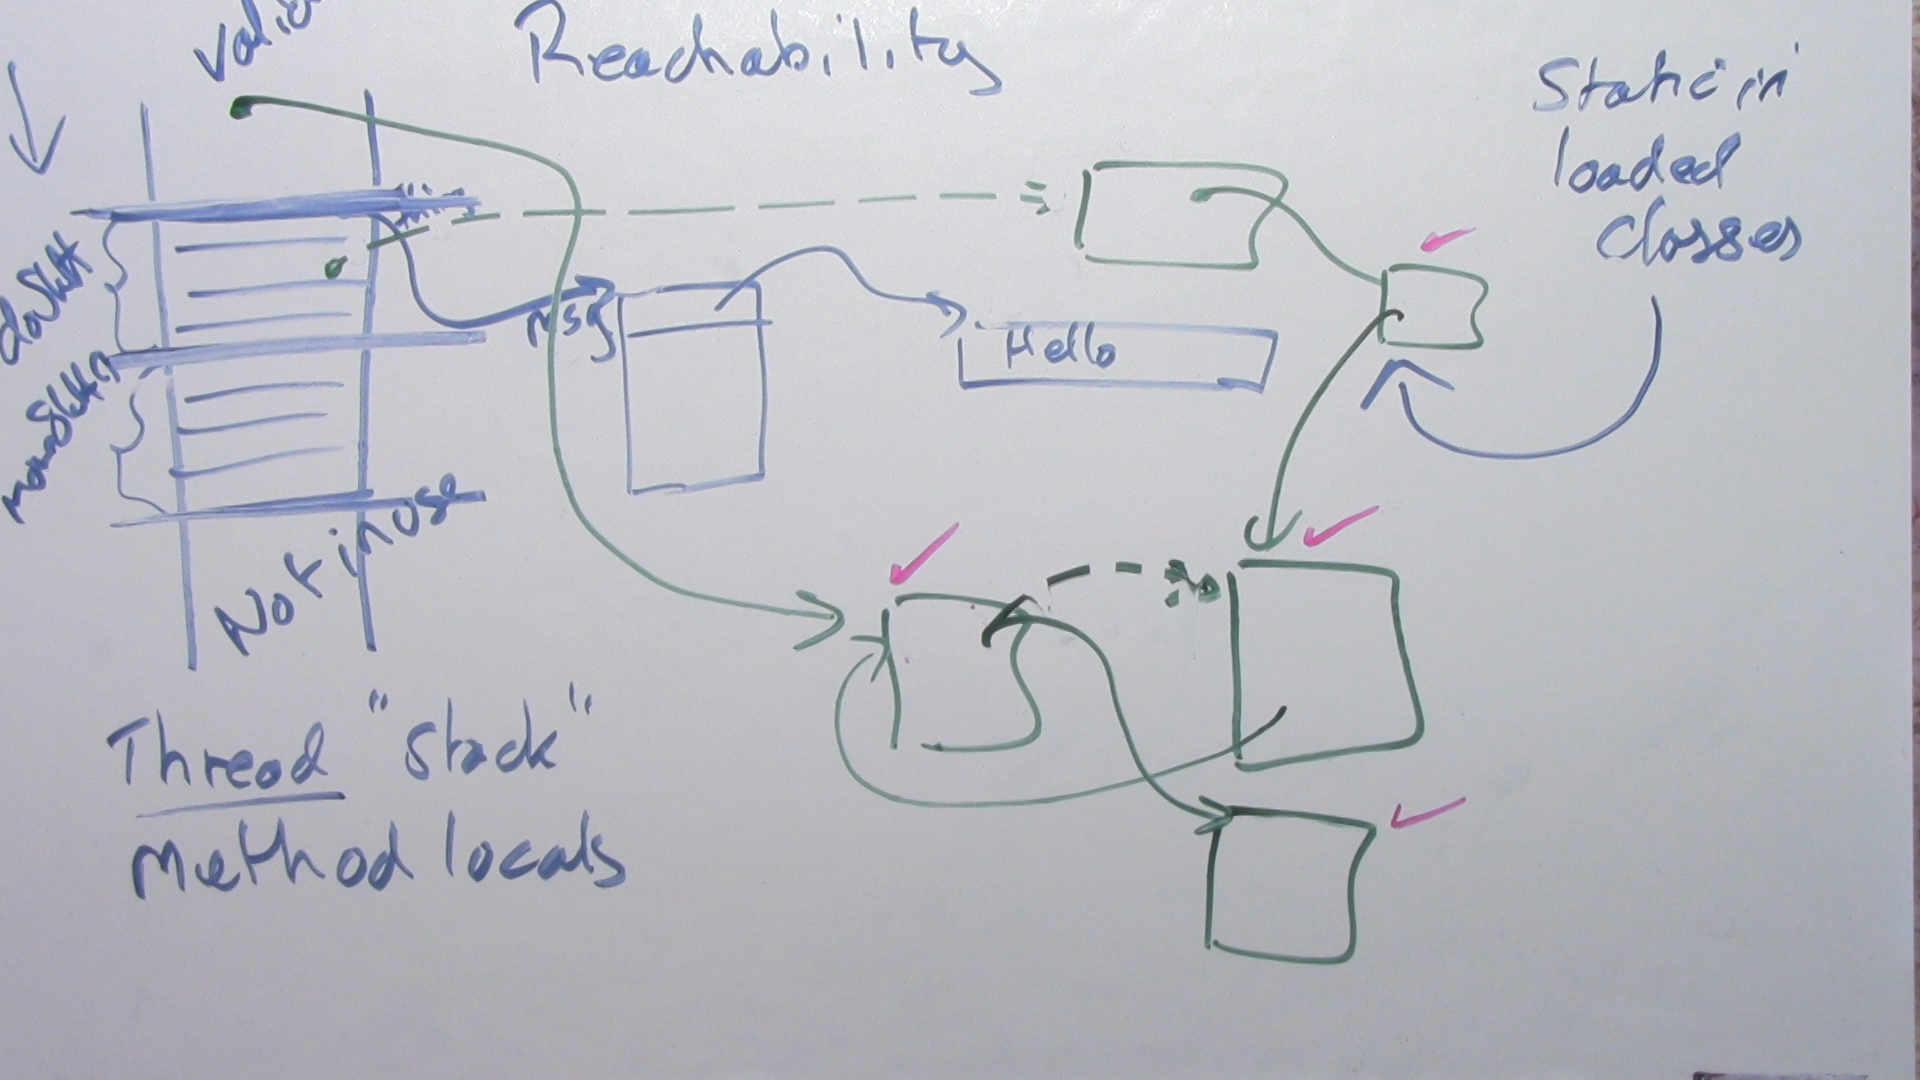 Reachability
Static in
loaded
classes
this
doShift
msg
Hello
Not in use
Thread "stack"
method locals